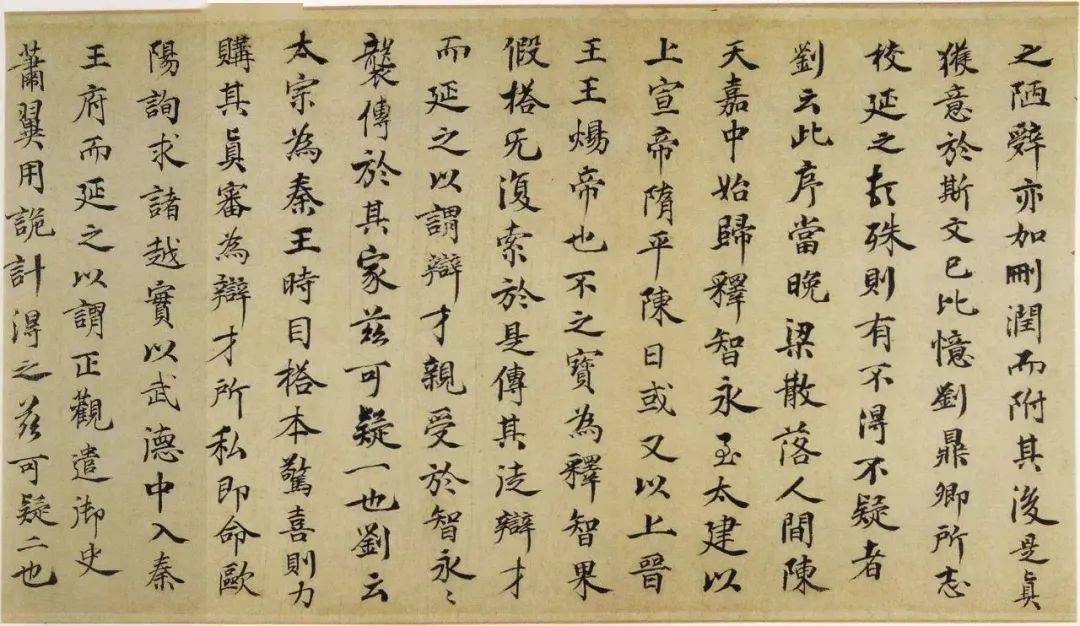 之陋辭亦加刪潤而附其後是真
獲意於斯文已比憶劉鼎卿所志
校延之敍殊則有不得不疑者
劉云此序當晚梁散落人間陳
天嘉中始歸釋智永至太建以
上宣帝隋平陳日或又以上晉
王王煬帝也不之寶為釋智果
假榻旡復索於是傳其徒辯才
而延之以謂辯才親受於智永〻
襲傳於其家茲可疑一也劉云
太宗為秦王時目榻本驚喜則力
購其真審為辯才所私即命歐
陽詢求諸越實以武德中入秦
王府而延之以謂正觀遣御史
蕭翼用詭計得之茲可疑二也